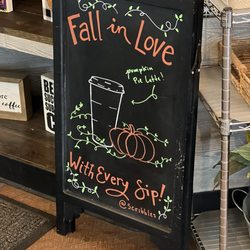 Fall in Love
pumpkin
Pot Latte!
With Every Sip!
@Scribbles
coffee